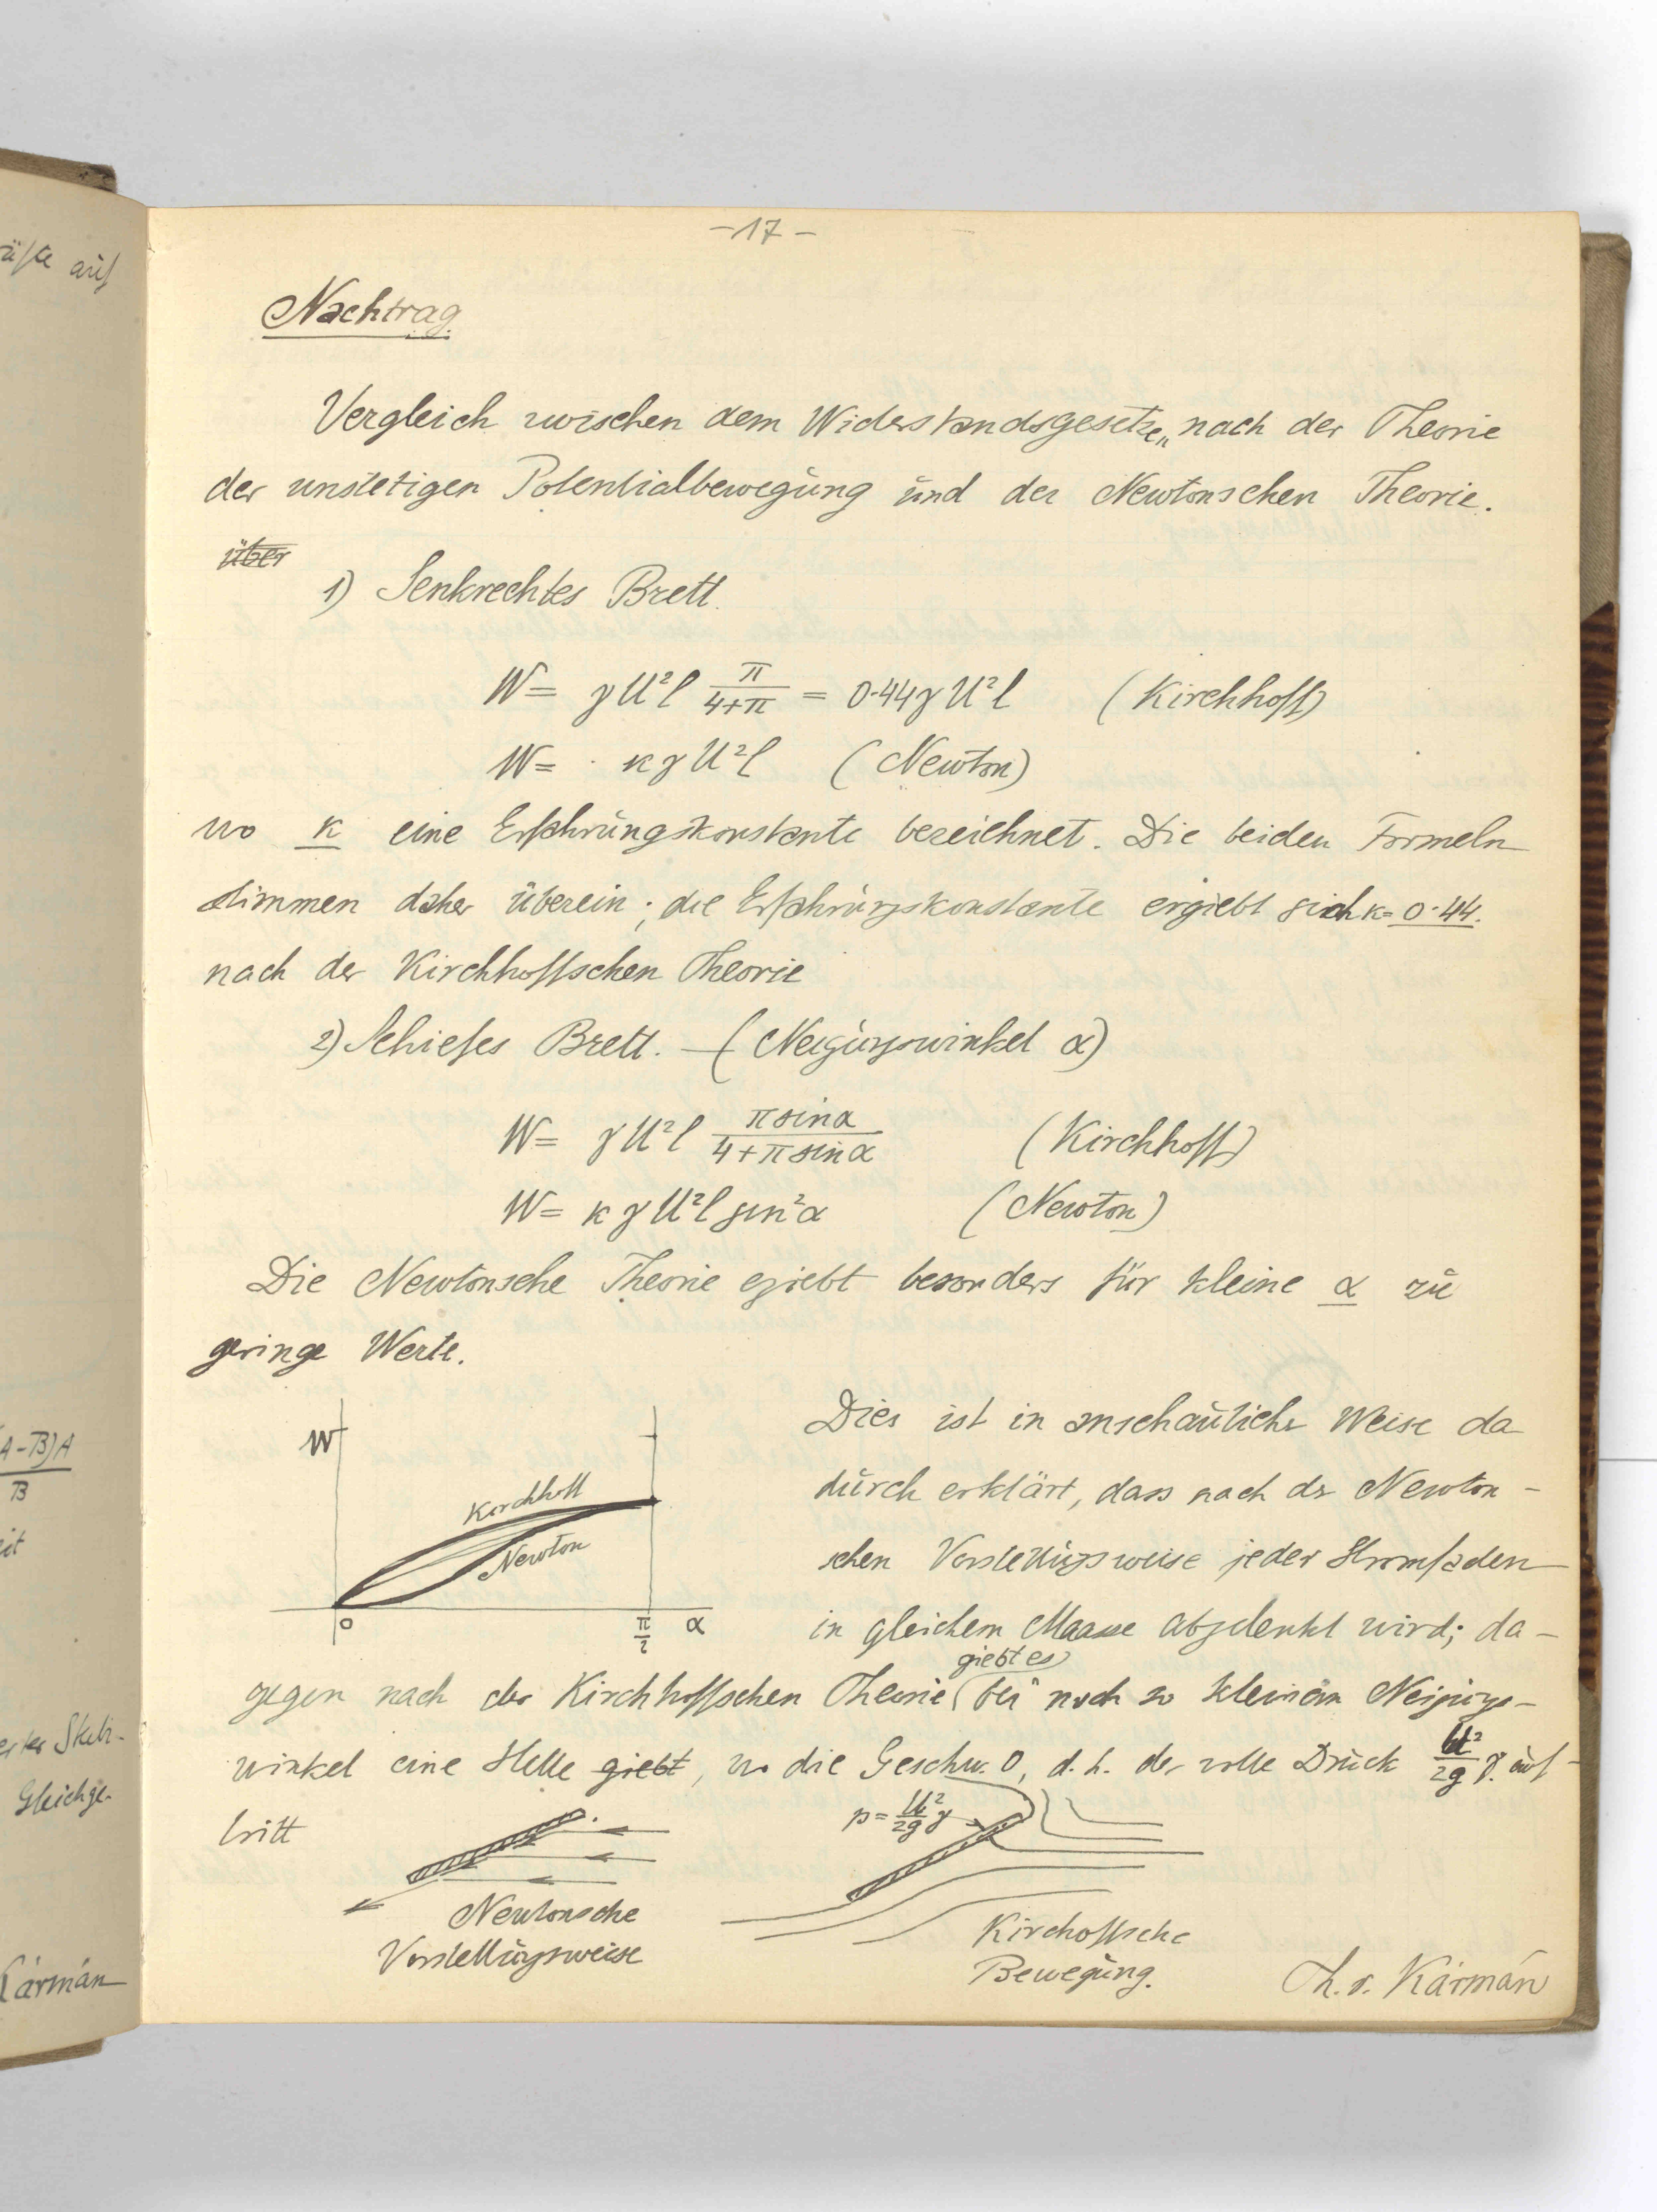 üfte auf
(A-B)A
B
eit
Gleichge-
Kármán
-17-
Nachtrag
Vergleich zwischen dem Widerstandsgesetze„ nach der Theorie
der unstetigen Potentialbewegung und der Newtonschen Theorie.
über
1) Senkrechtes Brett.
W = γU²l π/(4+π) = 0·44γU²l (Kirchhoff)
W = κγU²l (Newton)
wo κ eine Erfahrungskonstante bezeichnet. Die beiden Formeln
stimmen daher überein; die Erfahrungskonstante ergiebt sich κ= 0·44.
nach der Kirchhoffschen Theorie
2) Schiefes Brett. — (Neigungswinkel α)
W = γU²l π sinα/(4+π sinα) (Kirchhoff)
W = κγU²l sin²α (Newton)
Die Newtonsche Theorie ergiebt besonders für kleine α zu
geringe Werte.
W
Kirchhoff
Newton
0
π/2
α
Dies ist in anschaulicher Weise da
durch erklärt, dass nach der Newton-
schen Vorstellungsweise jeder Stromfaden
in gleichem Maasse abgelenkt wird; da-
giebt es
gegen nach der Kirchhoffschen Theorie bei noch so kleinem Neigungs-
winkel eine Stelle giebt, wo die Geschw. 0, d.h. der volle Druck U²/2g γ. auf-
tritt
p= U²/2g γ
Newtonsche
Vorstellungsweise
Kirchoffsche
Bewegung.
Th. v. Kármán